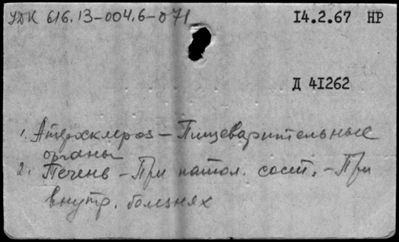 УДК 616.13-004.6-071
14.2.67 НР
Д 41262
1. Атеросклероз – Пищеварительные
органы
2. Печень – При патол. сост. – При
внутр. болезнях